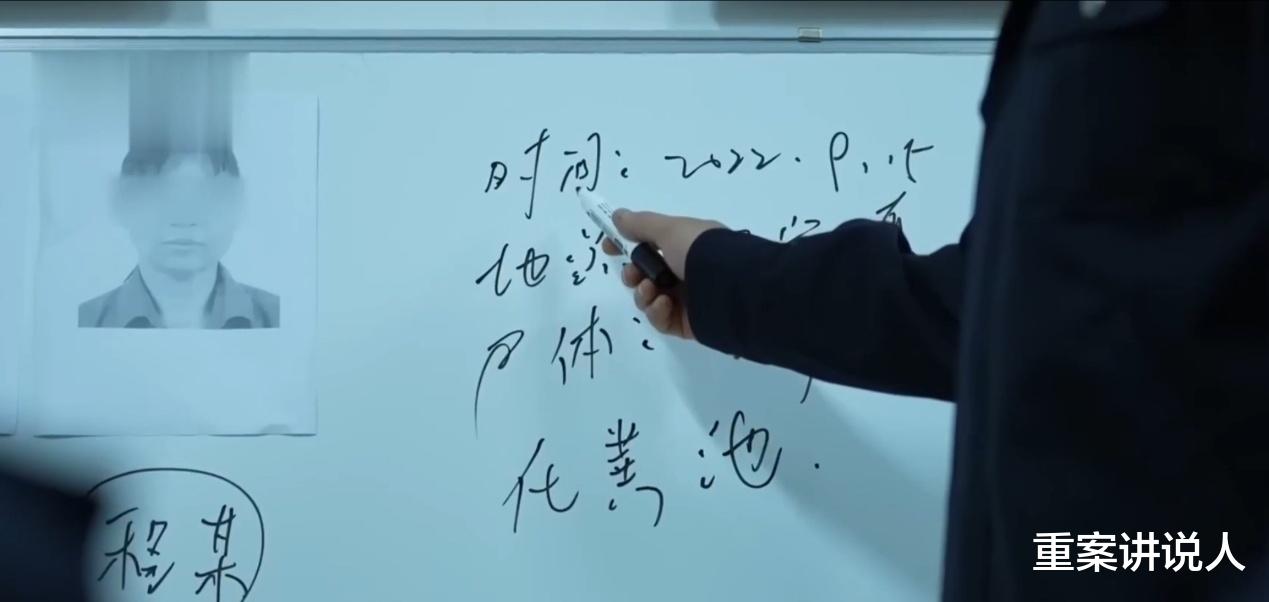 时间：2022.9.15
地点
尸体：
化粪池.
移某
重案讲说人